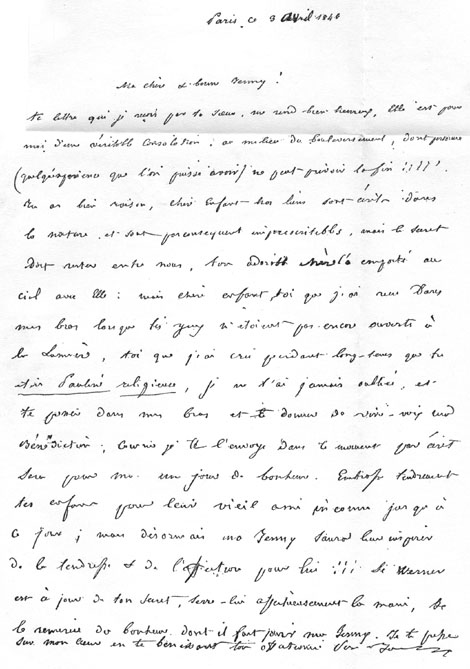 Paris, ce 3 avril 1848
Ma chère & bonne Jenny!
ta lettre qui je reçois par ta sœur, me rend bien heureux, Elle est pour
moi d'une véritable consolation: au milieu du bouleversement, dont personne
(quelque que l'on puisse avoir) ne peut prévoir la fin !!!!
tu as bien raison, cher Enfant nos liens sont écrits dans
la nature, et sont par conséquent imprescriptibles, mais le secret
doit rester entre nous, ton adorable Mère l'a emporté au
ciel avec Elle: mais chère enfant, toi que j'ai reçu Dans
mes bras lorsque tes yeux n'étoient pas encore ouverts à
la Lumière, toi que j'ai cru pendant long-tems que tu
étois Pauline religieuse, je ne t'ai jamais oubliée, et
te presser dans mes bras et te donner de vive-voix ma
Bénédiction; comme je te l'envoye dans ce moment par écrit
sera pour moi un jour de bonheur. Embrasse tendrement
tes enfans pour leur vieil ami inconnu jusqu'à
ce jour; mais désormais ma Jenny saura leur inspirer
de la tendresse & de l' pour lui !!! Si Werner
est à jour de ton secret, serre-lui affectueusement la main, &
le remercie du bonheur dont il fait jouir ma Jenny. Je te presse
sur mon cœur en te bénissant ton affectionné Père